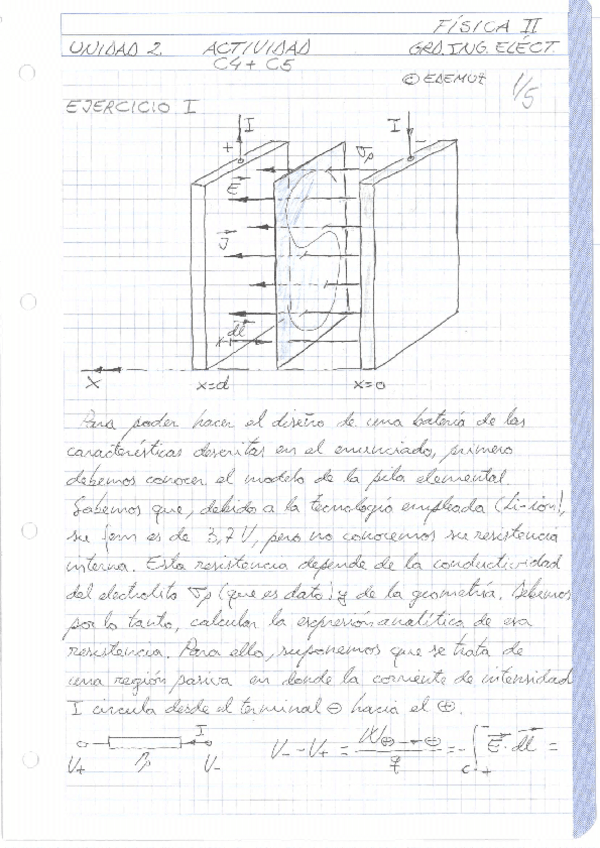 FÍSICA II
UNIDAD 2. ACTIVIDAD GRD. ING. ELÉCT.
C4 + C5
© EDEMUZ 1/5
EJERCICIO I
I I
+ -
σp
E
J
dl
X x=d x=0
Para poder hacer el diseño de una batería de las
características descritas en el enunciado, primero
debemos conocer el modelo de la pila elemental.
Sabemos que, debido a la tecnología empleada (Li-ion),
su fem es de 3,7 V, pero no conocemos su resistencia
interna. Esta resistencia depende de la conductividad
del electrolito σp (que es dato) y de la geometría. Debemos
por lo tanto, calcular la expresión analítica de esa
resistencia. Para ello, suponemos que se trata de
una región pasiva en donde la corriente de intensidad
I circula desde el terminal ⊖ hacia el ⊕.
I
V+ V-
V- - V+ = W⊕→⊖ / q = - ∫ E · dl =